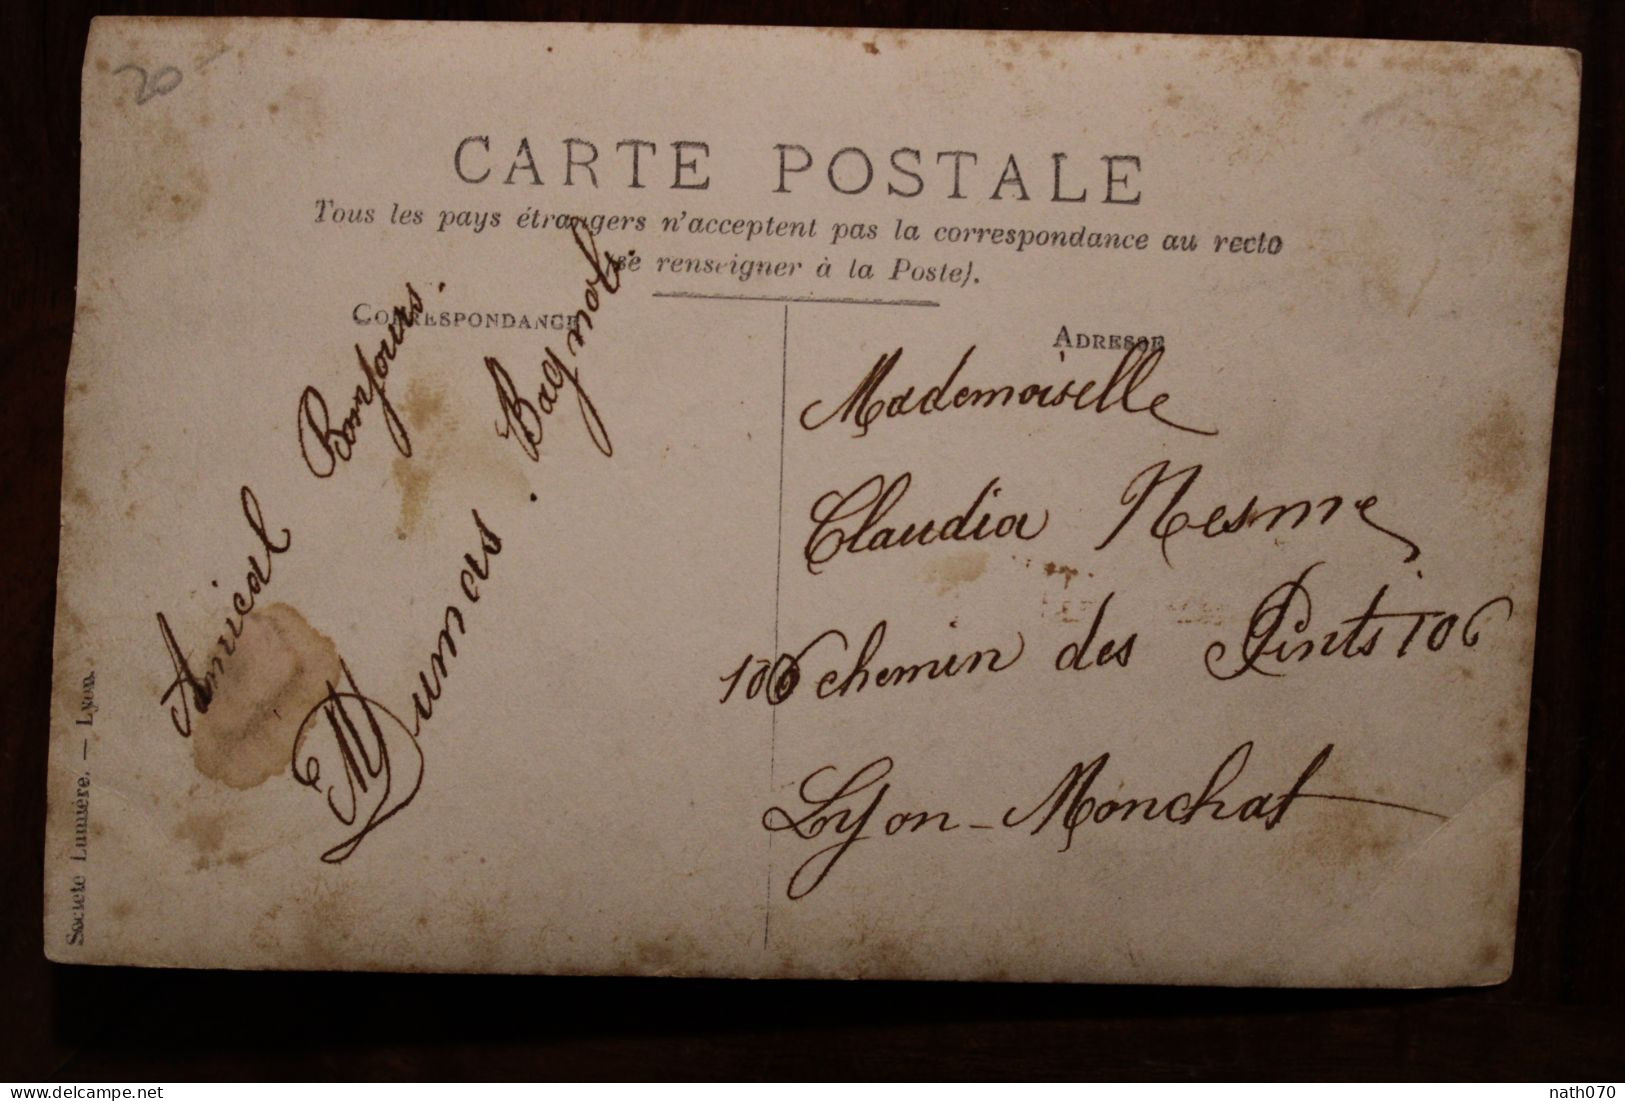 20-
CARTE POSTALE
Tous les pays étrangers n'acceptent pas la correspondance au recto
(se renseigner à la Poste).
CORRESPONDANCE
Amical Bonjours.
M Dumas. Bagnols.
ADRESSE
Mademoiselle
Claudia Nesme
106 chemin des Pints 106
Lyon-Monchat
Société Lumière. — Lyon.
delcampe.net
nath070